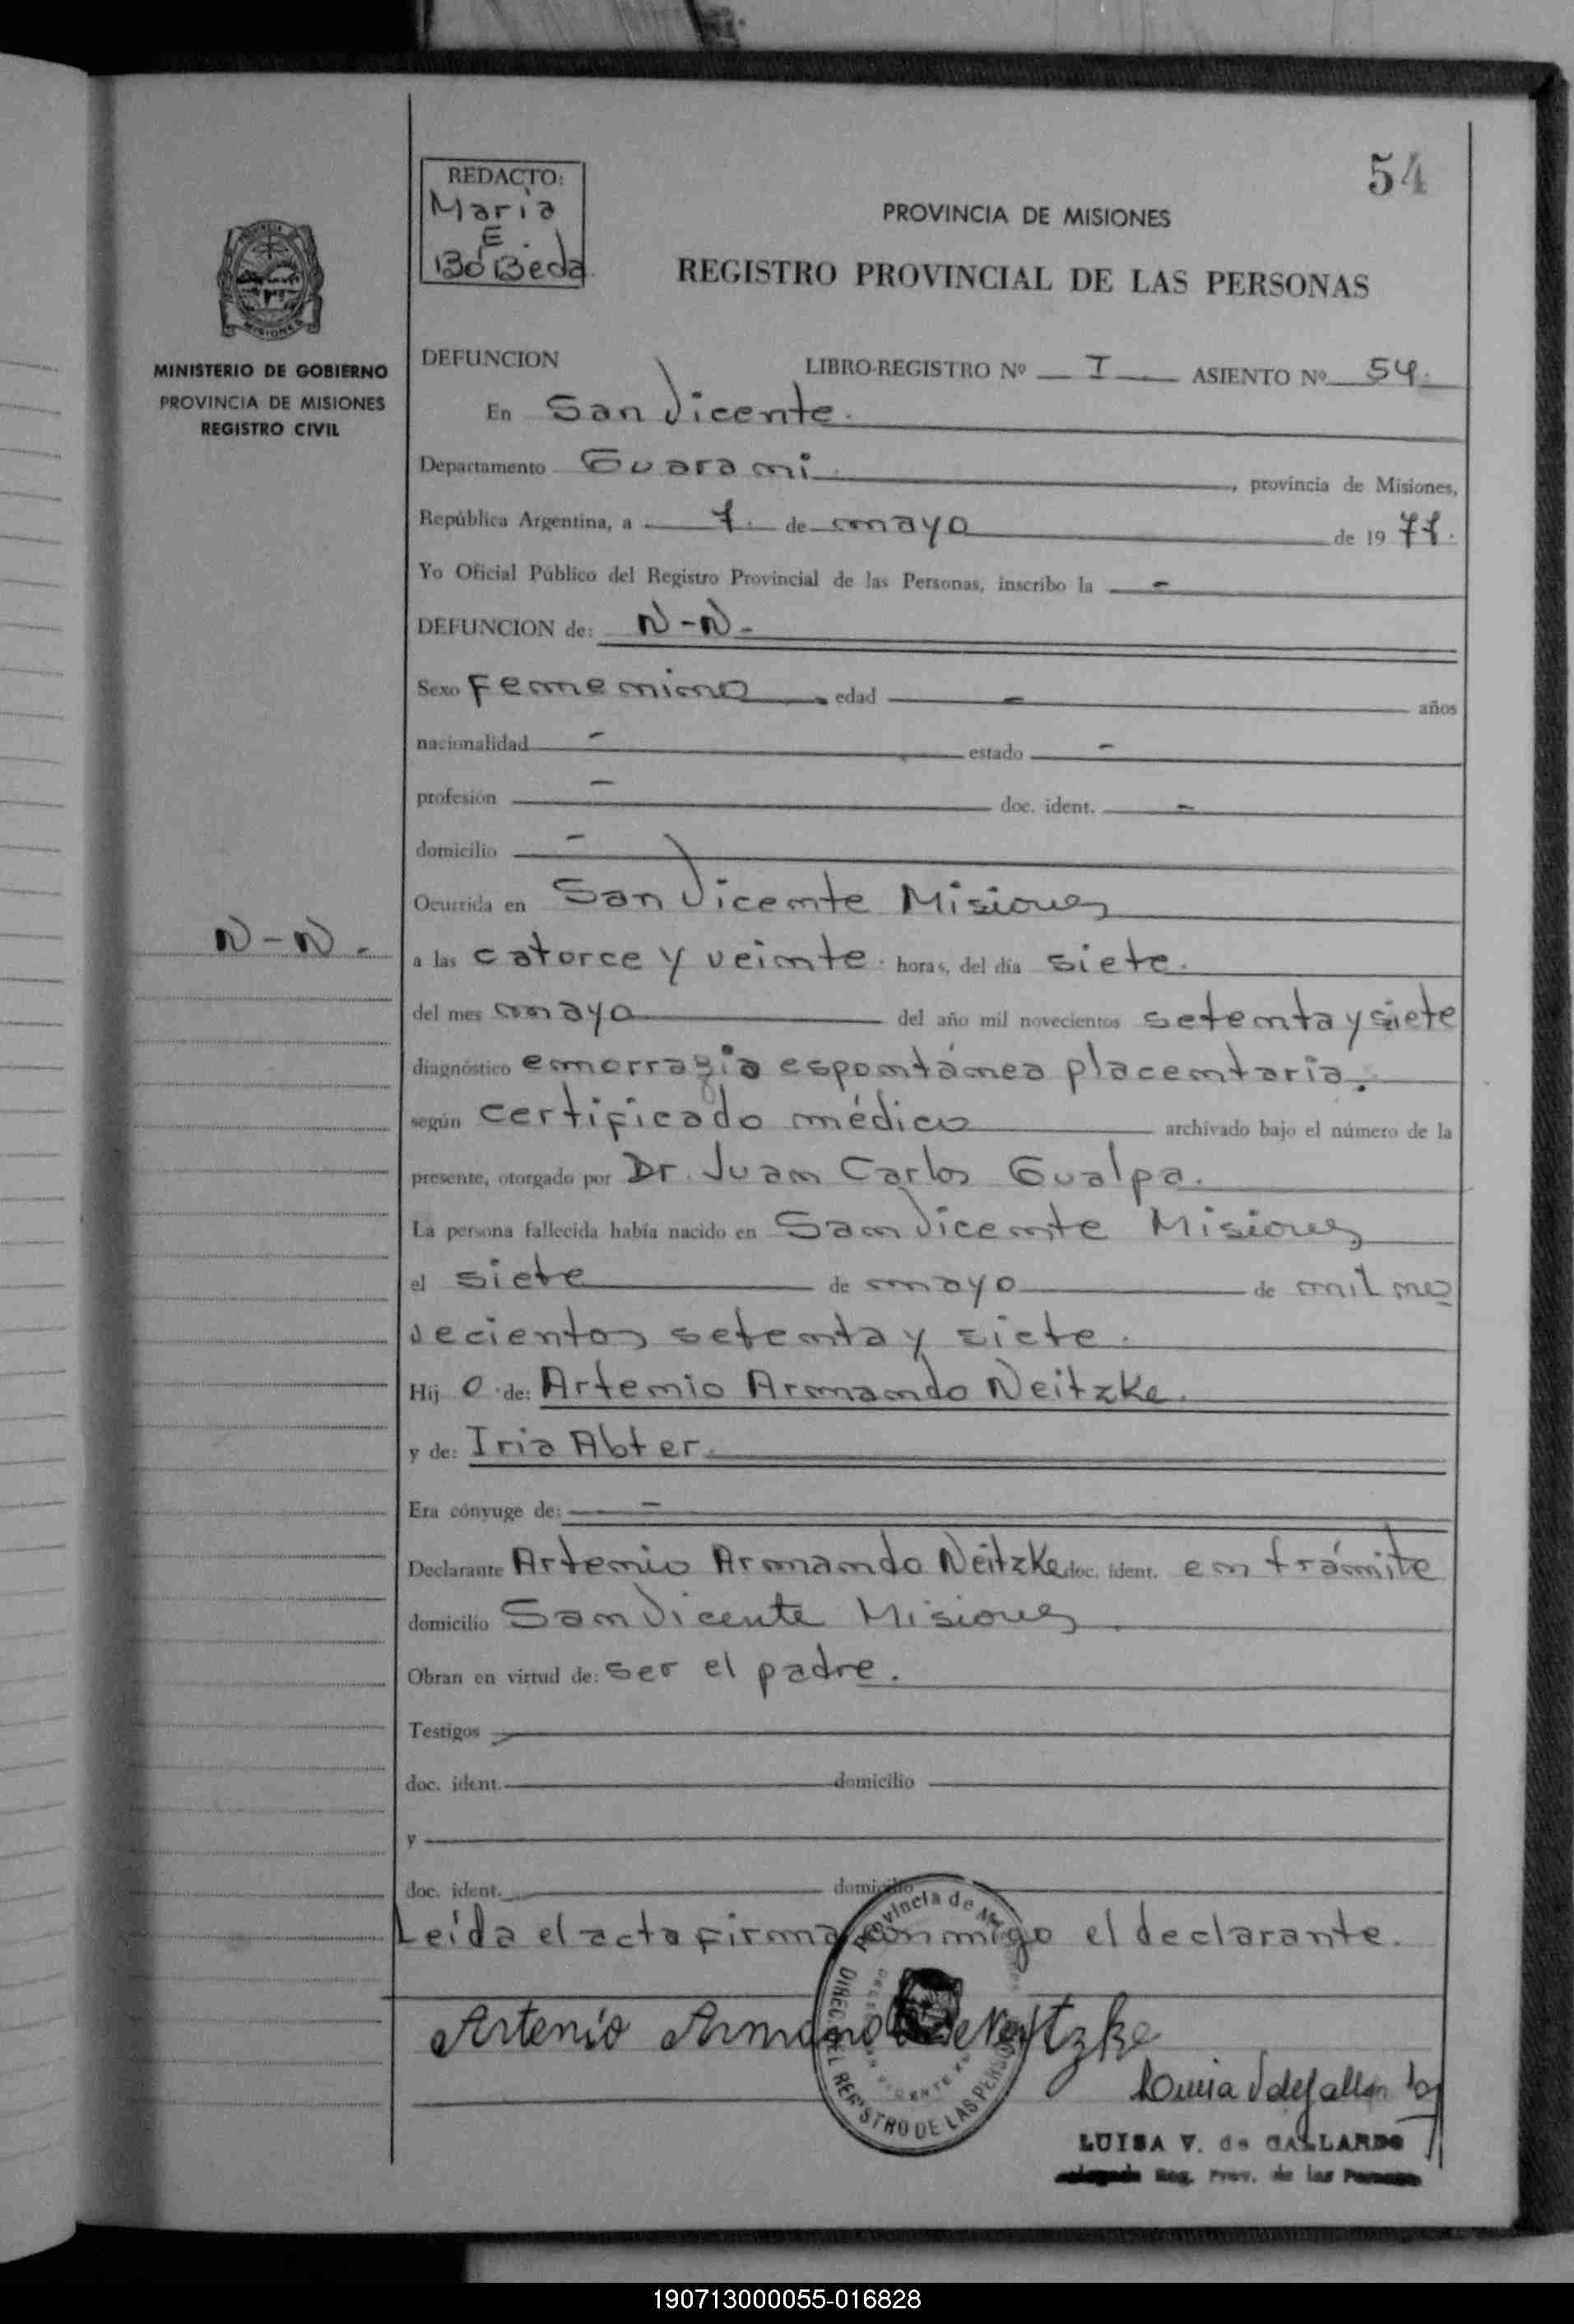 54
REDACTO:
Maria
E.
Bó Beda
PROVINCIA DE MISIONES
REGISTRO PROVINCIAL DE LAS PERSONAS
MISIONES
MINISTERIO DE GOBIERNO
PROVINCIA DE MISIONES
REGISTRO CIVIL
DEFUNCION LIBRO-REGISTRO Nº I ASIENTO Nº 54.
En San Vicente.
Departamento Guarani, provincia de Misiones,
República Argentina, a 7. de mayo de 1977.
Yo Oficial Público del Registro Provincial de las Personas, inscribo la -
DEFUNCION de: N-N-
Sexo femenino. edad - años
nacionalidad - estado -
profesión - doc. ident. -
domicilio -
Ocurrida en San Vicente Misiones
N-N-
a las catorce y veinte. horas, del día siete.
del mes mayo del año mil novecientos setenta y siete
diagnóstico emorragia espontánea placentaria.
según certificado médico archivado bajo el número de la
presente, otorgado por Dr. Juan Carlos Gualpa.
La persona fallecida había nacido en San Vicente Misiones
el siete de mayo de mil no
vecientos setenta y siete.
Hij o de: Artemio Armando Neitzke.
y de: Iria Abter.
Era cónyuge de: -
Declarante Artemio Armando Neitzke doc. ident. en trámite
domicilio San Vicente Misiones
Obran en virtud de: ser el padre.
Testigos
doc. ident. domicilio
y
doc. ident. domicilio
Leída el acta firma conmigo el declarante.
Provincia de
DIREC. DEL REGISTRO DE LAS PERSO
Artemio Armando Neytzke
LUISA V. de GALLARDO
Reg. Prov. de las Personas
190713000055-016828